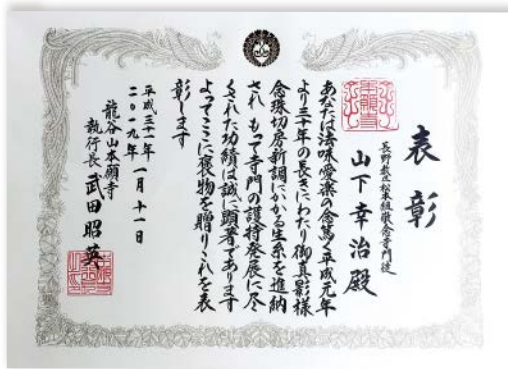 表彰
長野教区松本組敬念寺門徒
山下幸治殿
あなたは法味愛楽の念篤く平成元年
より三十年の長きにわたり御真影様
念珠切房新調にかかる生糸を進納
され もって寺門の護持発展に尽
くされた功績は誠に顕著であります
よってここに褒物を贈りこれを表
彰します
平成三十一年
二〇一九年
一月十一日
龍谷山本願寺
執行長 武田昭英